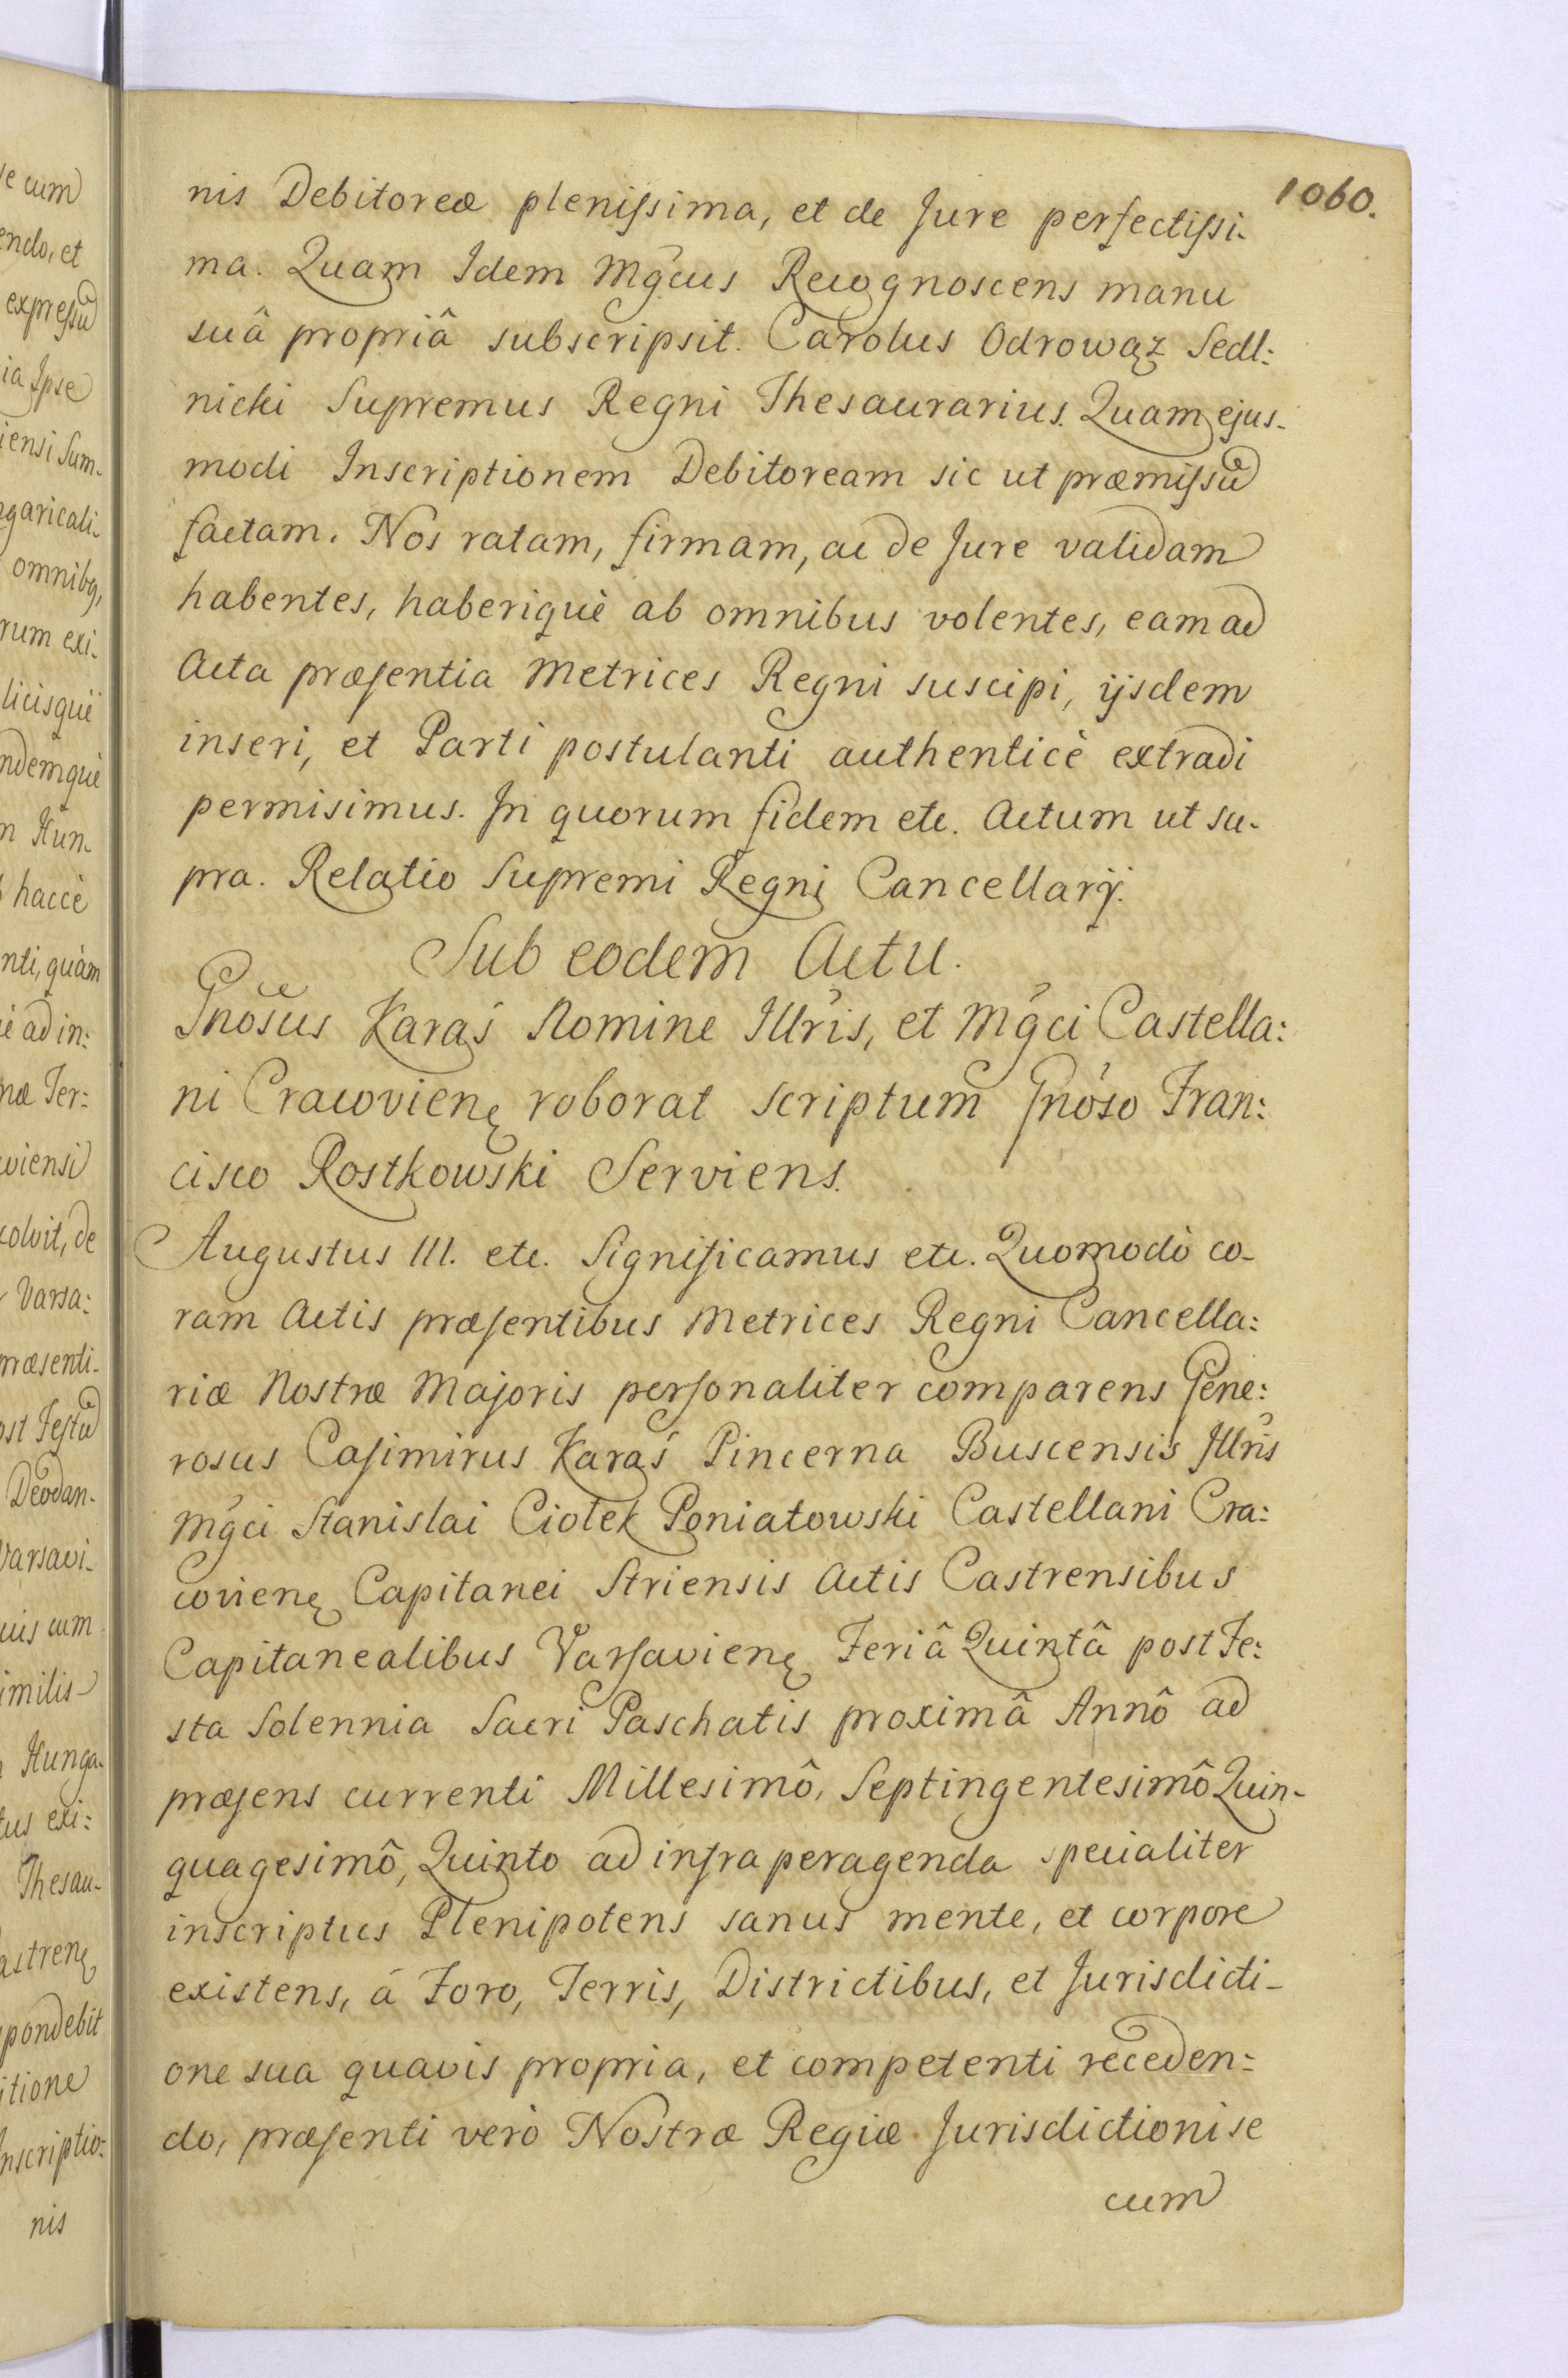 1060.
nis Debitoreæ plenissima, et de Jure perfectissi-
ma. Quam Idem Mgcus Recognoscens manu
suâ propriâ subscripsit. Carolus Odrowąz Sedl:
nicki Supremus Regni Thesaurarius. Quam ejus-
modi Inscriptionem Debitoream sic ut præmissū
factam. Nos ratam, firmam, ac de Jure validam
habentes, haberiquè ab omnibus volentes, eam ad
Acta præsentia Metrices Regni suscipi, ijsdem
inseri, et Parti postulanti authenticè extradi
permisimus. In quorum fidem etc. Actum ut su-
pra. Relatio Supremi Regni Cancellarij.
Sub eodem Actu.
Gnōsus Karaś Nomine Illris, et Mgci Castella:
ni Cracovienę roborat scriptum Gnoso Fran:
cisco Rostkowski Serviens.
Augustus III. etc. Significamus etc. Quomodò co-
ram Actis præsentibus Metrices Regni Cancella:
riæ Nostræ Majoris personaliter comparens Gene:
rosus Casimirus Karaś Pincerna Buscensis Illris
Mgci Stanislai Ciołek Poniatowski Castellani Cra:
covienę Capitanei Striensis Actis Castrensibus
Capitanealibus Varsavienę Feriâ Quintâ post Fe:
sta Solennia Sacri Paschatis proximâ Annô ad
præsens currenti Millesimô, Septingentesimô Quin-
quagesimô, Quinto ad infra peragenda specialiter
inscriptus Plenipotens sanus mente, et corpore
existens, á Foro, Terris, Districtibus, et Jurisdicti-
one sua quavis propria, et competenti receden:
do, præsenti verò Nostræ Regiæ Jurisdictioni se
cum